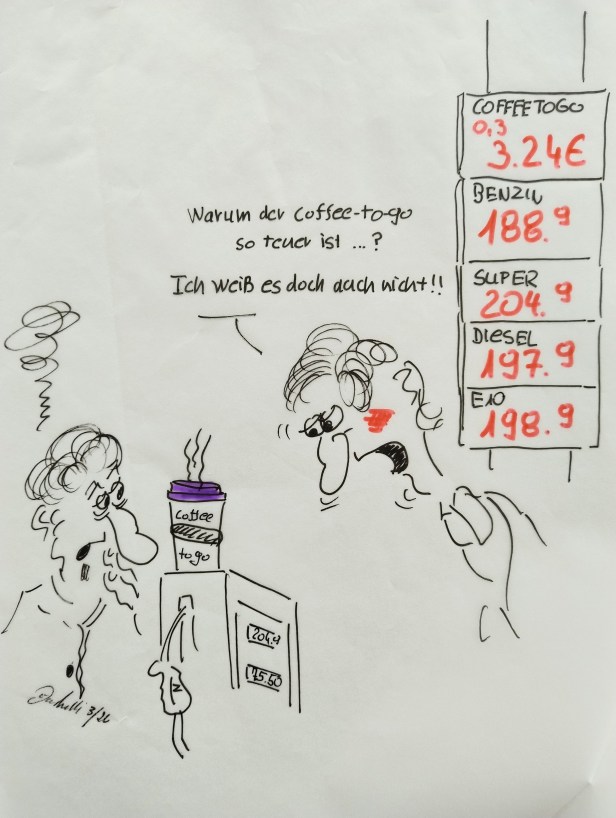 COFFEETOGO
0,3
3.24€
BENZIN
188.9
SUPER
204.9
DIESEL
197.9
E10
198.9
Warum der Coffee-to-go
so teuer ist ...?
Ich weiß es doch auch nicht!!
coffee
to go
204.9
75.50
3/26